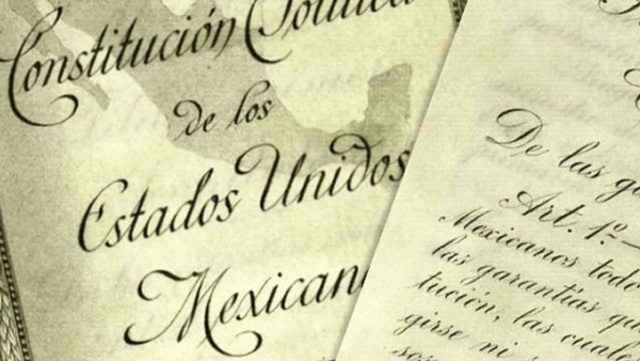 Constitución Política
de los
Estados Unidos
Mexican
De las g
Art. 1º.—
Mexicanos todo
las garantías qu
tución, las cuale
girse ni